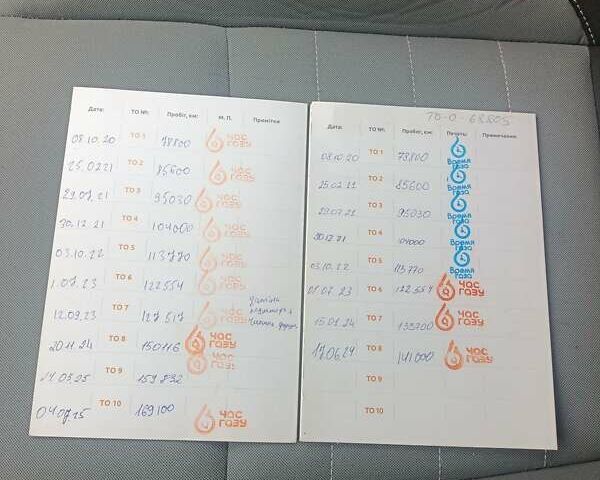 Дата: ТО №: Пробіг, км: М. П. Примітки
08.10.20 ТО 1 78800 ЧАС ГАЗУ
25.02.21 ТО 2 85600 ЧАС ГАЗУ
29.07.21 ТО 3 95030 ЧАС ГАЗУ
30.12.21 ТО 4 104000 ЧАС ГАЗУ
03.10.22 ТО 5 113770 ЧАС ГАЗУ
1.07.23 ТО 6 122554 ЧАС ГАЗУ
12.09.23 ТО 7 127517 ЧАС ГАЗУ заміна
20.11.24 ТО 8 150116 ЧАС ГАЗУ
ТО 9 159832 ЧАС ГАЗУ
04.07.25 ТО 10 169100 ЧАС ГАЗУ
ТО-0-68805
Дата: ТО №: Пробег, км: Печать: Примечания:
08.10.20 ТО 1 78800 Время газа
25.02.21 ТО 2 85600 Время газа
29.07.21 ТО 3 95030 Время газа
30.12.21 ТО 4 104000 Время газа
03.10.22 ТО 5 113770 Время газа
01.07.23 ТО 6 122554 ЧАС ГАЗУ
15.01.24 ТО 7 133700 ЧАС ГАЗУ
17.06.24 ТО 8 141000 ЧАС ГАЗУ
ТО 9
ТО 10